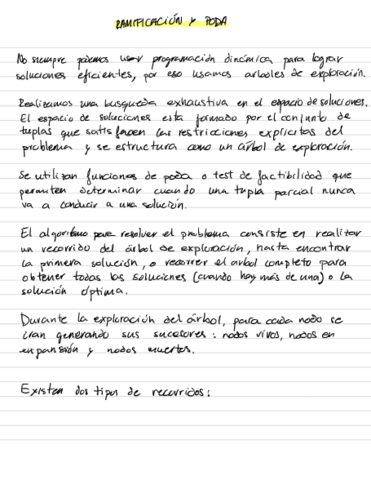 RAMIFICACIÓN Y PODA
No siempre podemos usar programación dinámica para lograr
soluciones eficientes, por eso usamos arboles de exploración.
Realizamos una busqueda exhaustiva en el espacio de soluciones.
El espacio de soluciones esta formado por el conjunto de
tuplas que satisfacen las restricciones explicitas del
problema y se estructura como un árbol de exploración.
Se utilizan funciones de poda o test de factibilidad que
permiten determinar cuando una tupla parcial nunca
va a conducir a una solución.
El algoritmo para resolver el problema consiste en realizar
un recorrido del árbol de exploración, hasta encontrar
la primera solución, o recorrer el arbol completo para
obtener todas las soluciones (cuando hay más de una) o la
solución óptima.
Durante la exploración del árbol, para cada nodo se
iran generando sus sucesores: nodos vivos, nodos en
expansión y nodos muertos.
Existen dos tipos de recorridos: